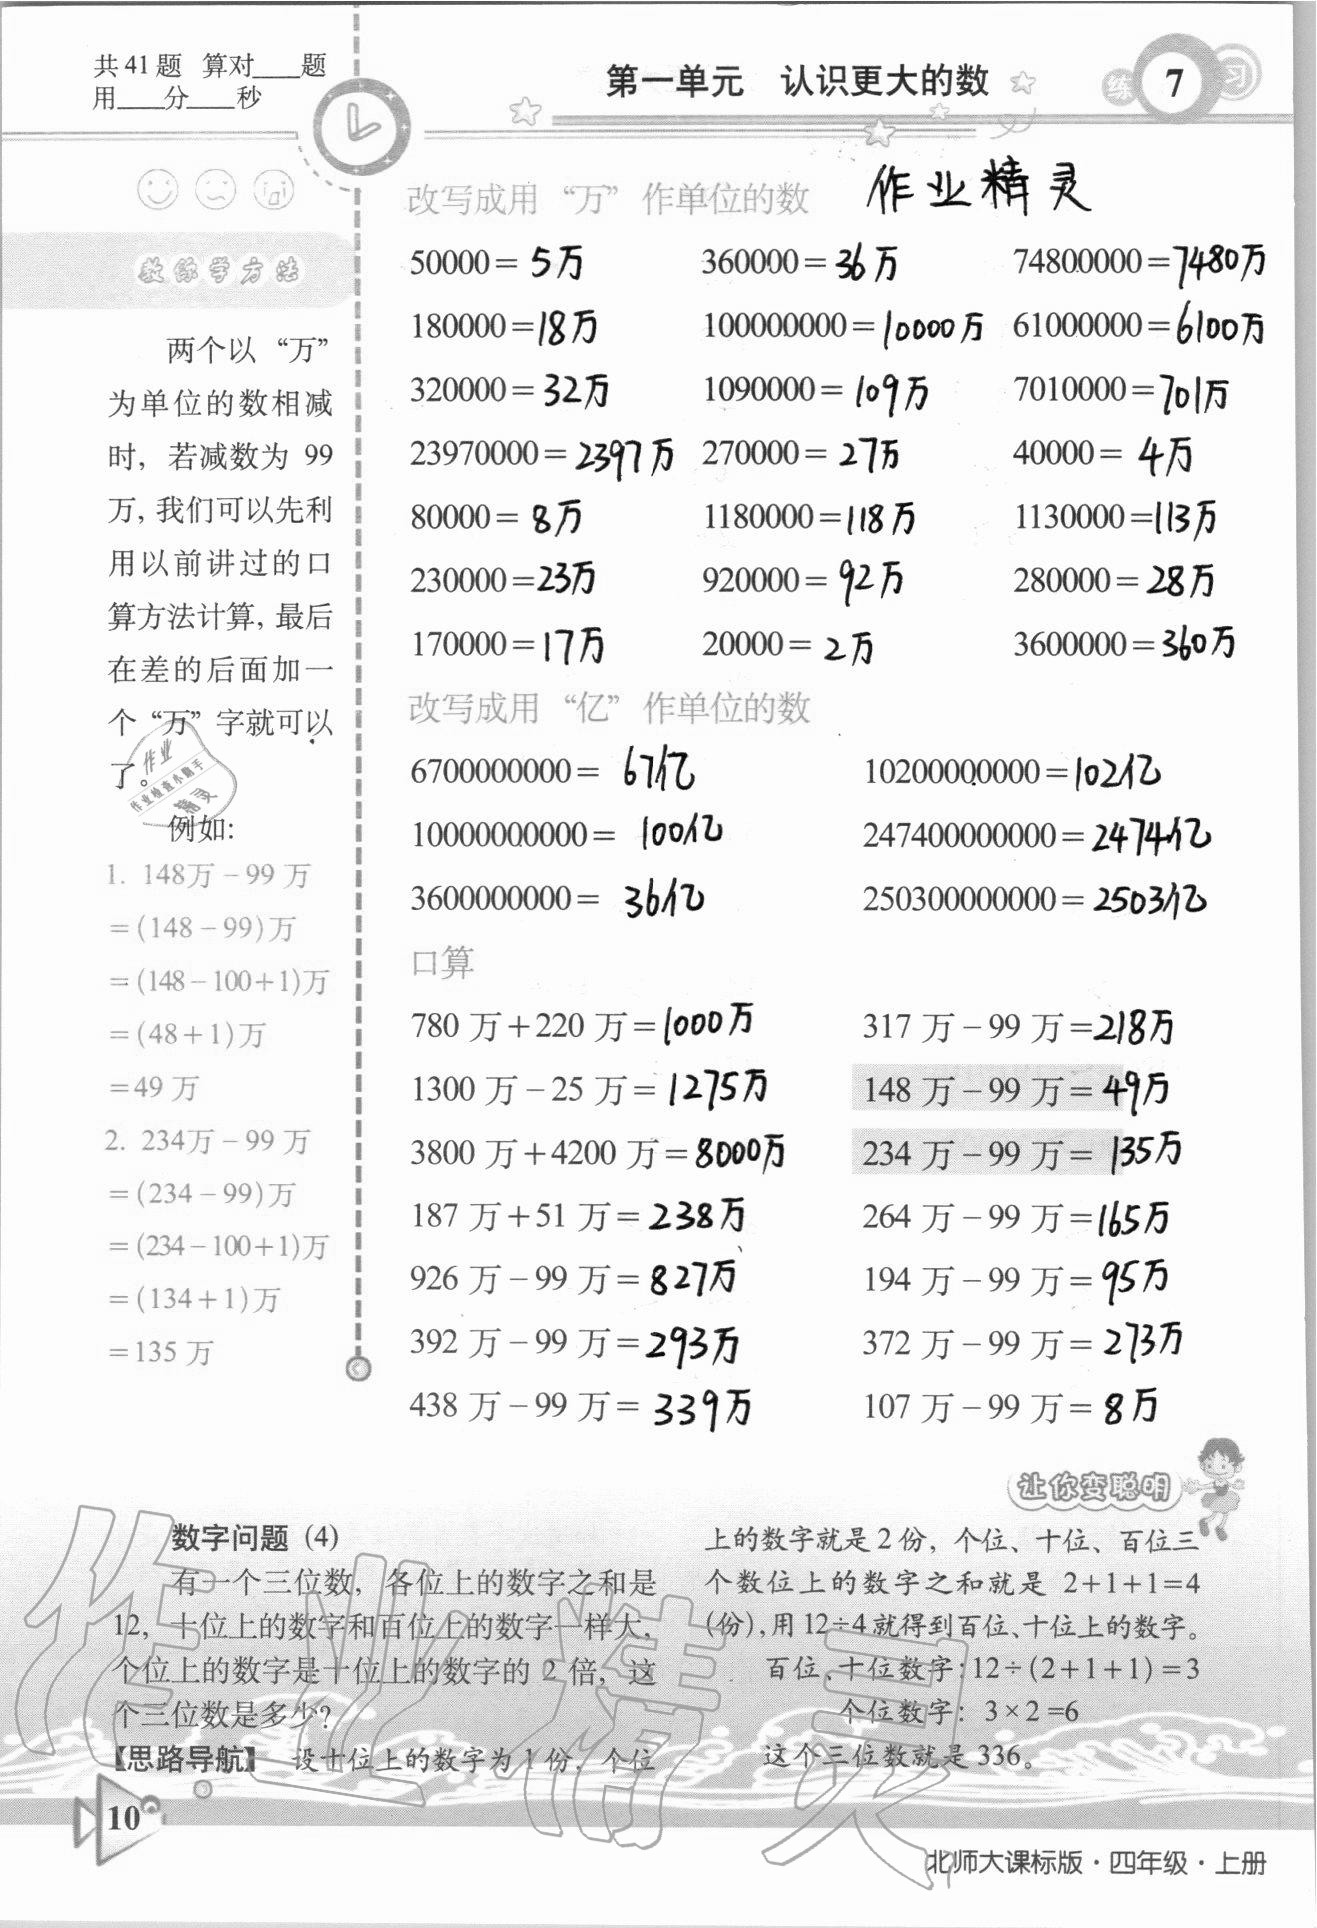 共 41 题 算对____题
用____分____秒
第一单元 认识更大的数
练 7 习
教你学方法
两个以“万”
为单位的数相减
时，若减数为 99
万，我们可以先利
用以前讲过的口
算方法计算，最后
在差的后面加一
个“万”字就可以
了。
例如：
1. 148万－99 万
＝(148－99)万
＝(148－100＋1)万
＝(48＋1)万
＝49 万
2. 234万－99 万
＝(234－99)万
＝(234－100＋1)万
＝(134＋1)万
＝135 万
作业
作业检查小助手
精灵
改写成用“万”作单位的数 作业精灵
50000＝5万 360000＝36万 74800000＝7480万
180000＝18万 100000000＝10000万 61000000＝6100万
320000＝32万 1090000＝109万 7010000＝701万
23970000＝2397万 270000＝27万 40000＝4万
80000＝8万 1180000＝118万 1130000＝113万
230000＝23万 920000＝92万 280000＝28万
170000＝17万 20000＝2万 3600000＝360万
改写成用“亿”作单位的数
6700000000＝67亿 10200000000＝102亿
10000000000＝100亿 247400000000＝2474亿
3600000000＝36亿 250300000000＝2503亿
口算
780 万＋220 万＝1000万 317 万－99 万＝218万
1300 万－25 万＝1275万 148 万－99 万＝49万
3800 万＋4200 万＝8000万 234 万－99 万＝135万
187 万＋51 万＝238万 264 万－99 万＝165万
926 万－99 万＝827万 194 万－99 万＝95万
392 万－99 万＝293万 372 万－99 万＝273万
438 万－99 万＝339万 107 万－99 万＝8万
让你变聪明
数字问题 (4)
有一个三位数，各位上的数字之和是
12，十位上的数字和百位上的数字一样大，
个位上的数字是十位上的数字的 2 倍，这
个三位数是多少？
【思路导航】 设十位上的数字为 1 份，个位
上的数字就是 2 份，个位、十位、百位三
个数位上的数字之和就是 2+1+1=4
(份)，用 12÷4 就得到百位、十位上的数字。
百位、十位数字：12÷(2+1+1)=3
个位数字：3×2=6
这个三位数就是 336。
作业精灵
10
北师大课标版·四年级·上册